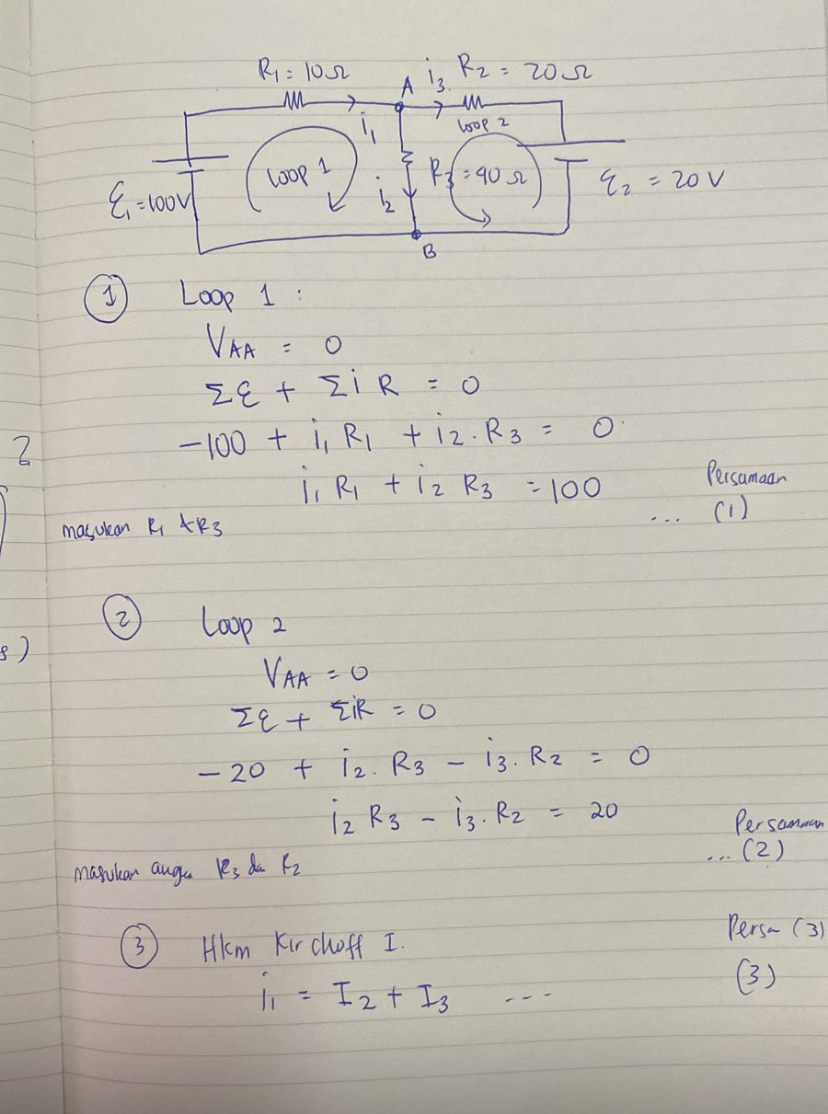 R₁ = 10Ω
A i₃ R₂ = 20Ω
i₁ loop 2
Loop 1
i₂ R₃ = 40Ω
ε₁ = 100V
ε₂ = 20V
B
① Loop 1 :
V_AA = 0
Σε + Σi R = 0
-100 + i₁ R₁ + i₂. R₃ = 0
i₁ R₁ + i₂ R₃ = 100
Persamaan
... (1)
masukan R₁ & R₃
② Loop 2
V_AA = 0
Σε + ΣiR = 0
- 20 + i₂. R₃ - i₃. R₂ = 0
i₂ R₃ - i₃. R₂ = 20
Persamaan
... (2)
masukan angka R₃ dan R₂
③ Hkm Kirchoff I.
Persm (3)
i₁ = I₂ + I₃ --- (3)